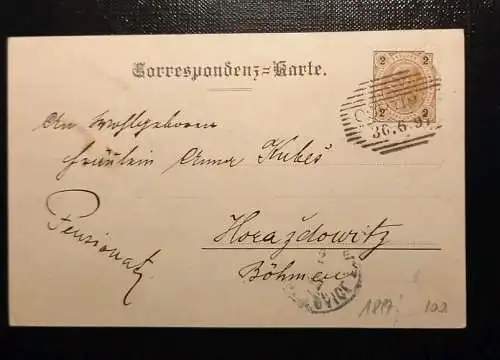 Correspondenz-Karte.
2 2
2 2
30.6.97
An Wohlgeboren
Fräulein Anna Kubeš
Pensionat
Horaždowitz
Böhmen
1897 102